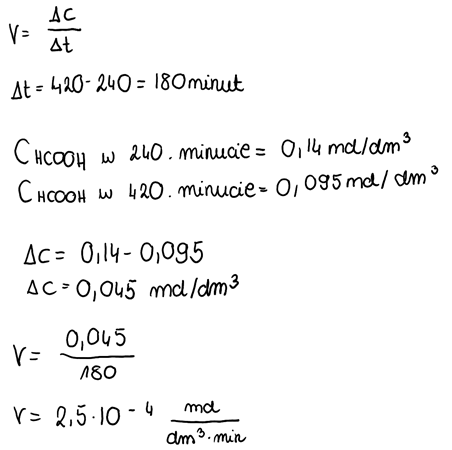 V = Δc/Δt
Δt = 420 - 240 = 180 minut
C HCOOH w 240. minucie = 0,14 mol/dm³
C HCOOH w 420. minucie = 0,095 mol/dm³
Δc = 0,14 - 0,095
Δc = 0,045 mol/dm³
V = 0,045/180
V = 2,5·10⁻⁴ mol/dm³·min